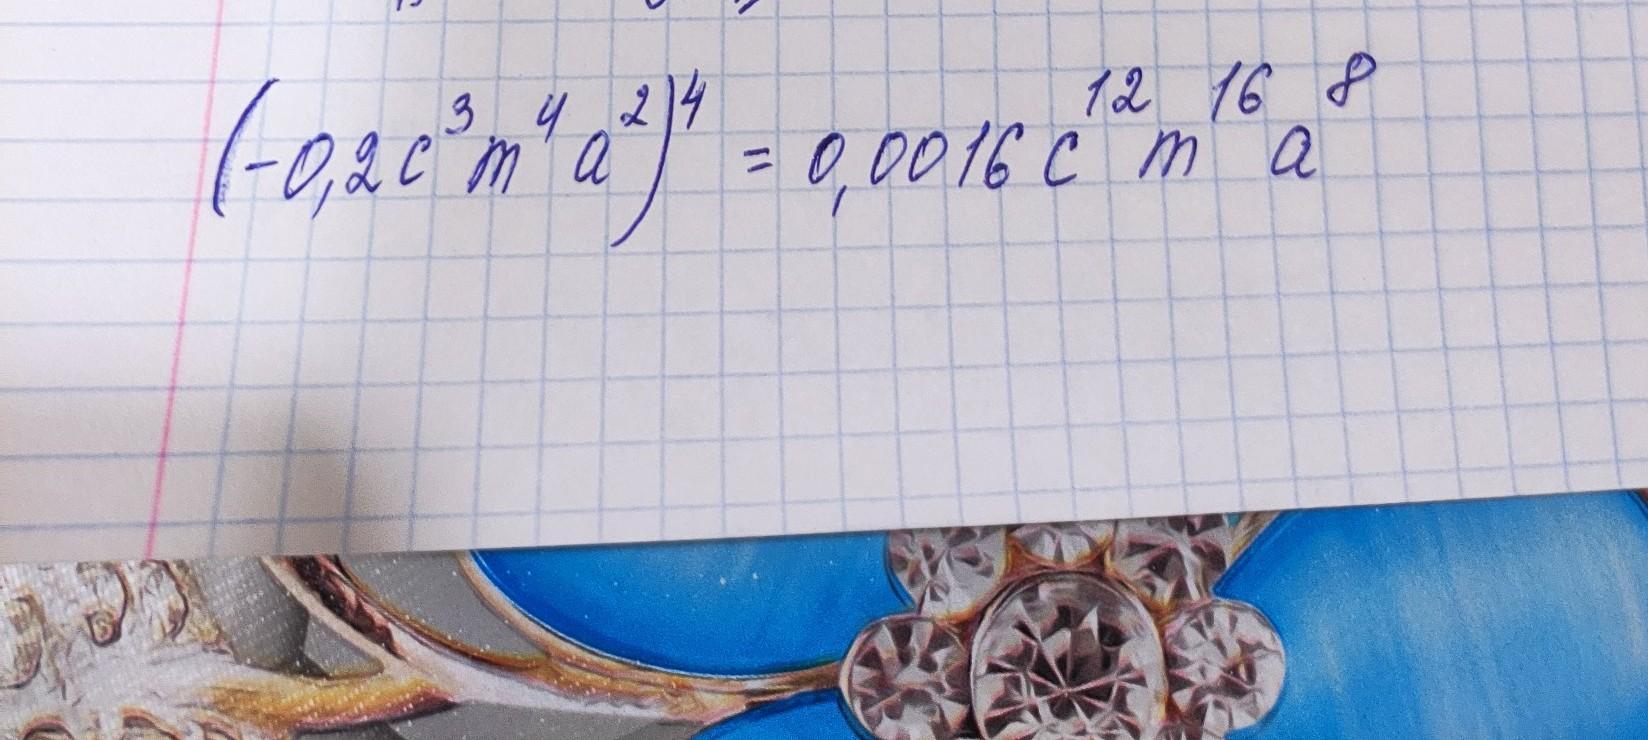 (-0,2c³m⁴a²)⁴ = 0,0016c¹²m¹⁶a⁸